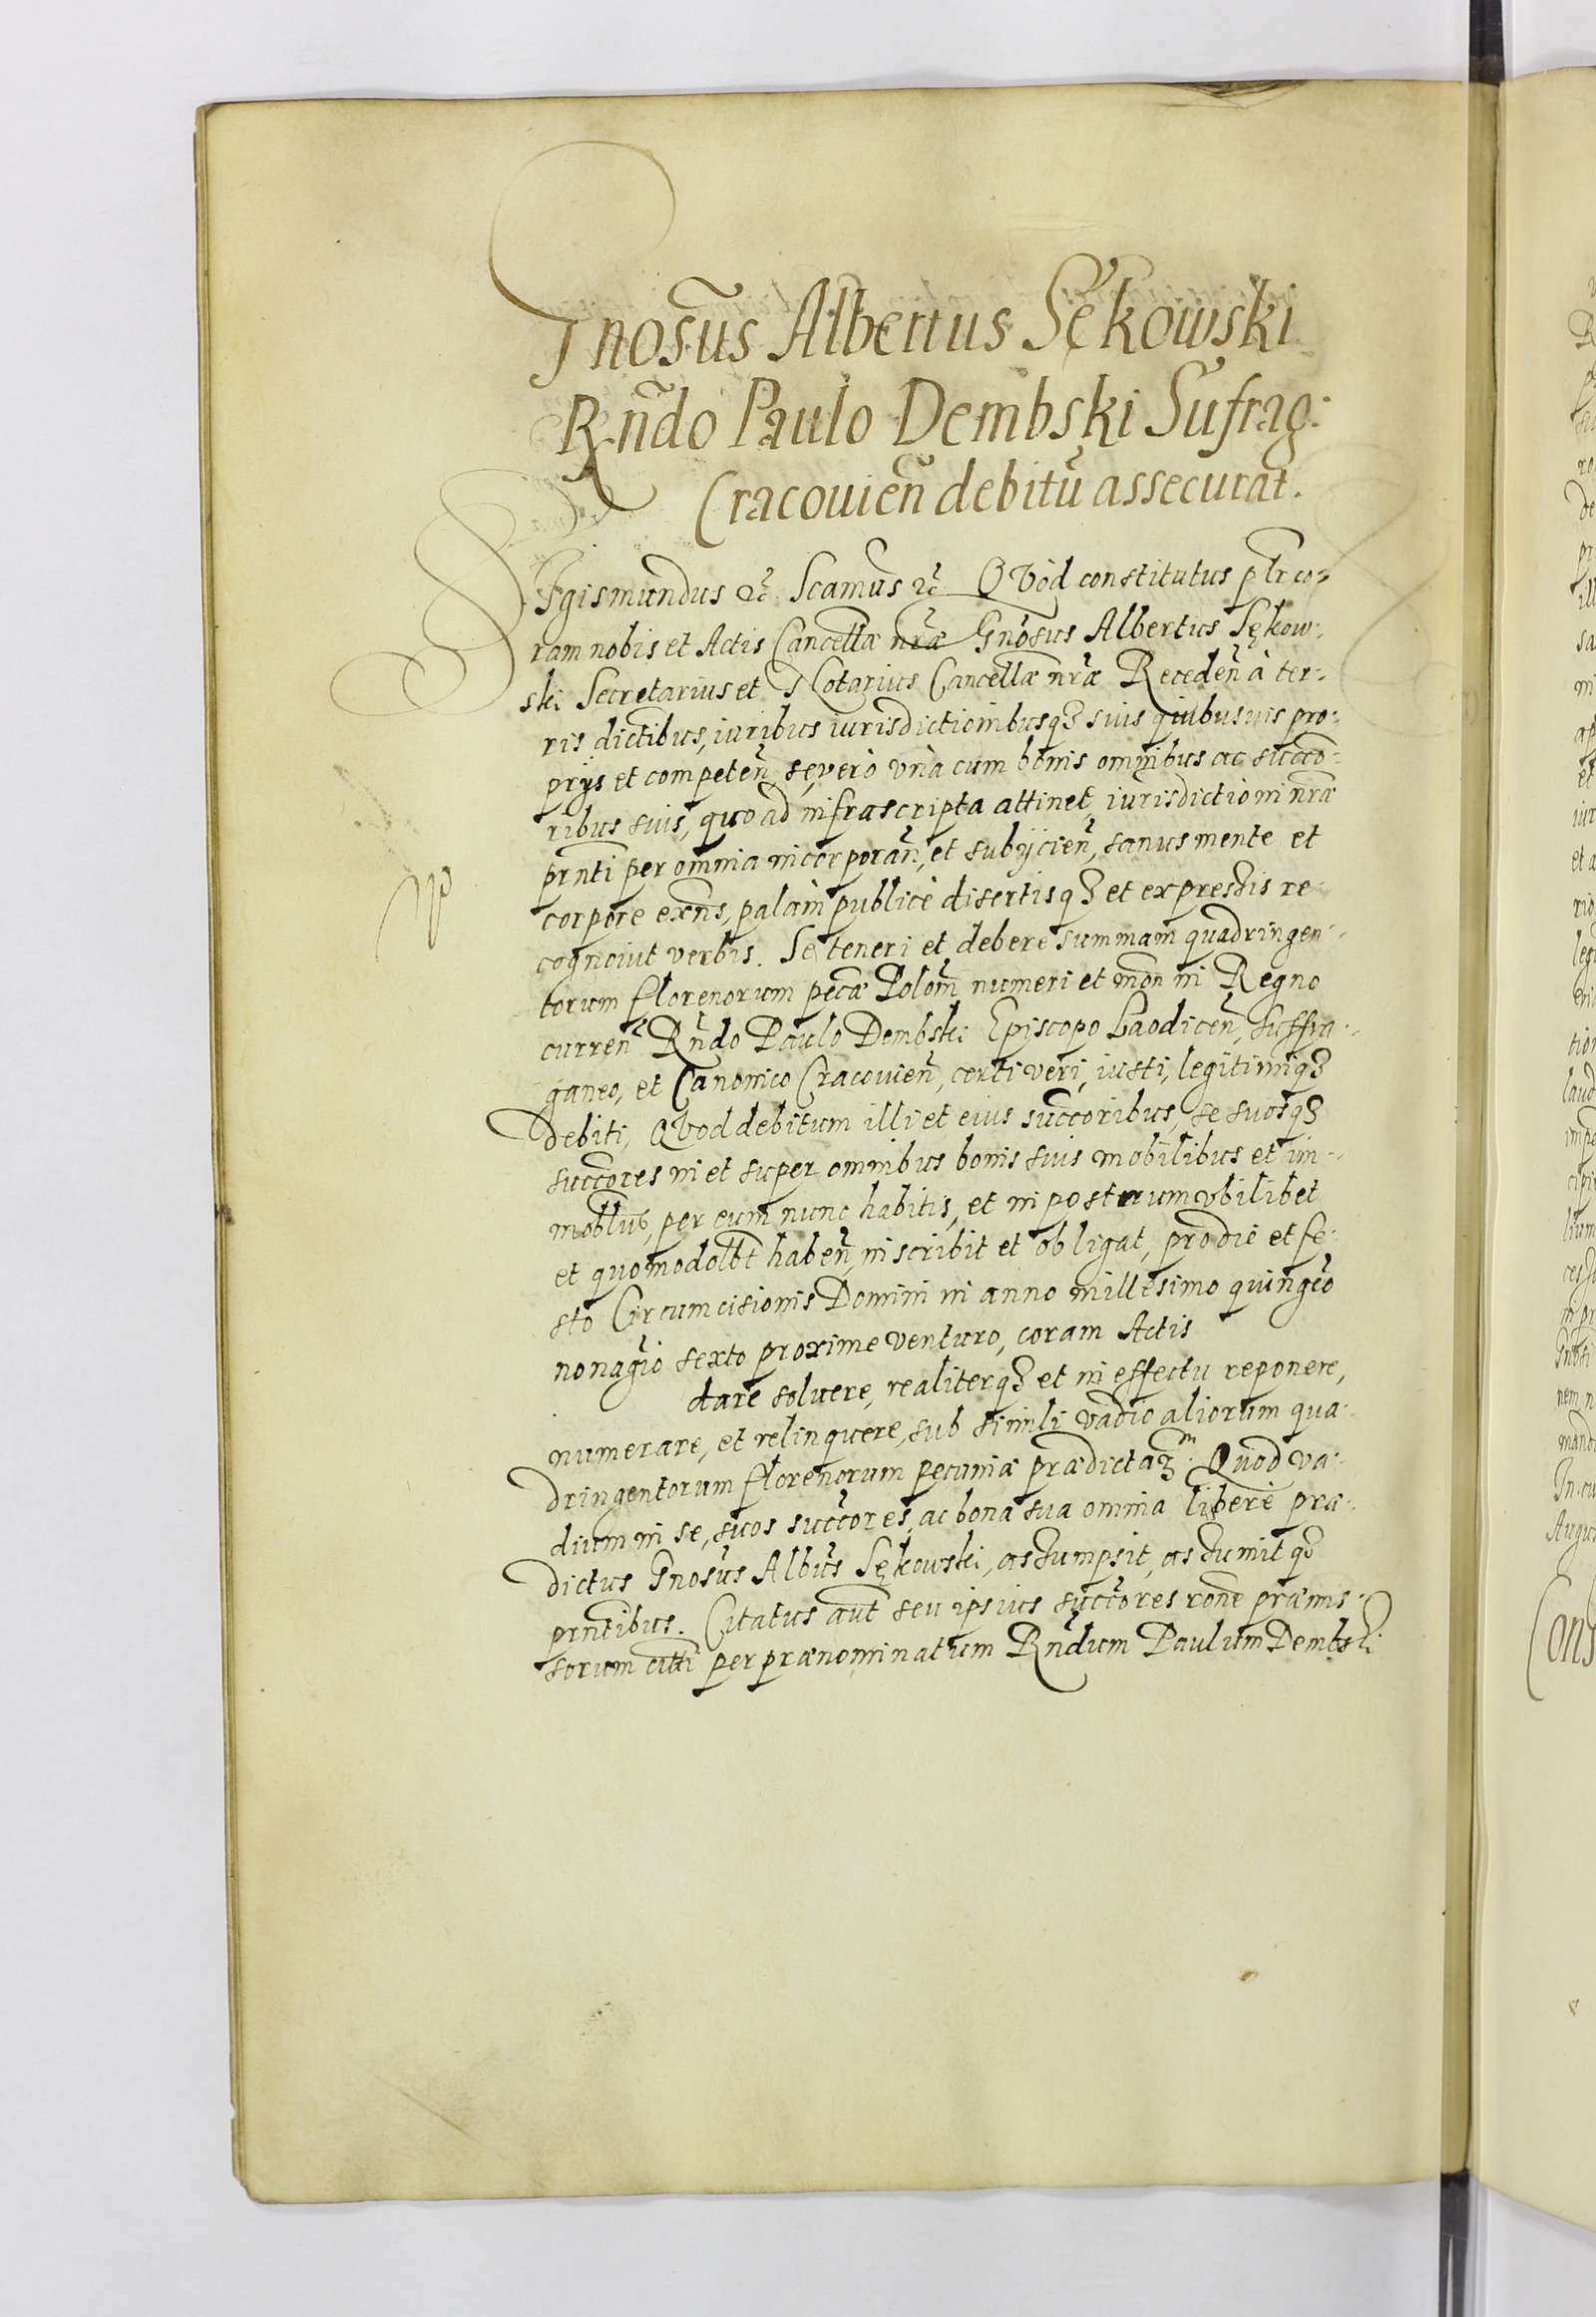 Gnosus Albertus Sękowski
Rndo Paulo Dembski Sufrag:
Cracouien debitu assecurat.
SIgismundus etc. Scamus etc. QVod constitutus pltr co=
ram nobis et Actis Cancellæ nræ Gnosus Albertus Sękow:
ski Secretarius et Notarius Cancellæ nræ Receden à ter:
ris dictibus, iuribus iurisdictionibusq3 suis quibusuis pro:
prijs et competen, se vero vnà cum bonis omnibus ac succo:
ribus suis, quo ad infrascripta attinet, iurisdictioni nræ
prnti per omnia incorporan, et subijcien, sanus mente et
corpore exns, palàm publicè disertisq3 et expressis re
cognouit verbis. Se teneri et debere summam quadringen:
torum florenorum pecæ Polom numeri et mon in Regno
curren Rndo Paulo Dembski Episcopo Laodicen, Suffra:
ganeo, et Canonico Cracouien, certi veri, iusti, legitimiq3
debiti, QVod debitum illi et eius succoribus, se suosq3
succores in et super omnibus bonis suis mobilibus et im:
moblibus, per eum nunc habitis, et in postrum vbilibet
et quomodolbt haben, inscribit et obligat, pro die et fe:
sto Circumcisionis Domini in anno millesimo quingeo
nonagio sexto proxime venturo, coram Actis
dare soluere, realiterq3 et in effectu reponere,
numerare, et relinquere, sub simili vadio aliorum qua:
dringentorum florenorum pecuniæ prædictæ. Quod va:
dium in se, suos succores, ac bona sua omnia liberè præ:
dictus Gnosus Albtus Sękowski, assumpsit, assumitq3
prntibus. Citatus aut seu ipsius succores rone præmis:
sorum per prænominatum Rndum Paulum Dembski